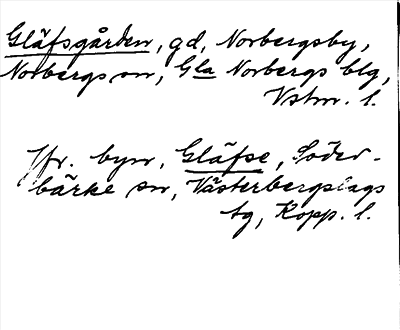 Gläfsgården, gd, Norbergsby,
Norbergs sn, Gla Norbergs blg,
Vstm. l.
Jfr. byn, Gläfse, Söder-
bärke sn, Västerbergslags
tg, Kopp. l.